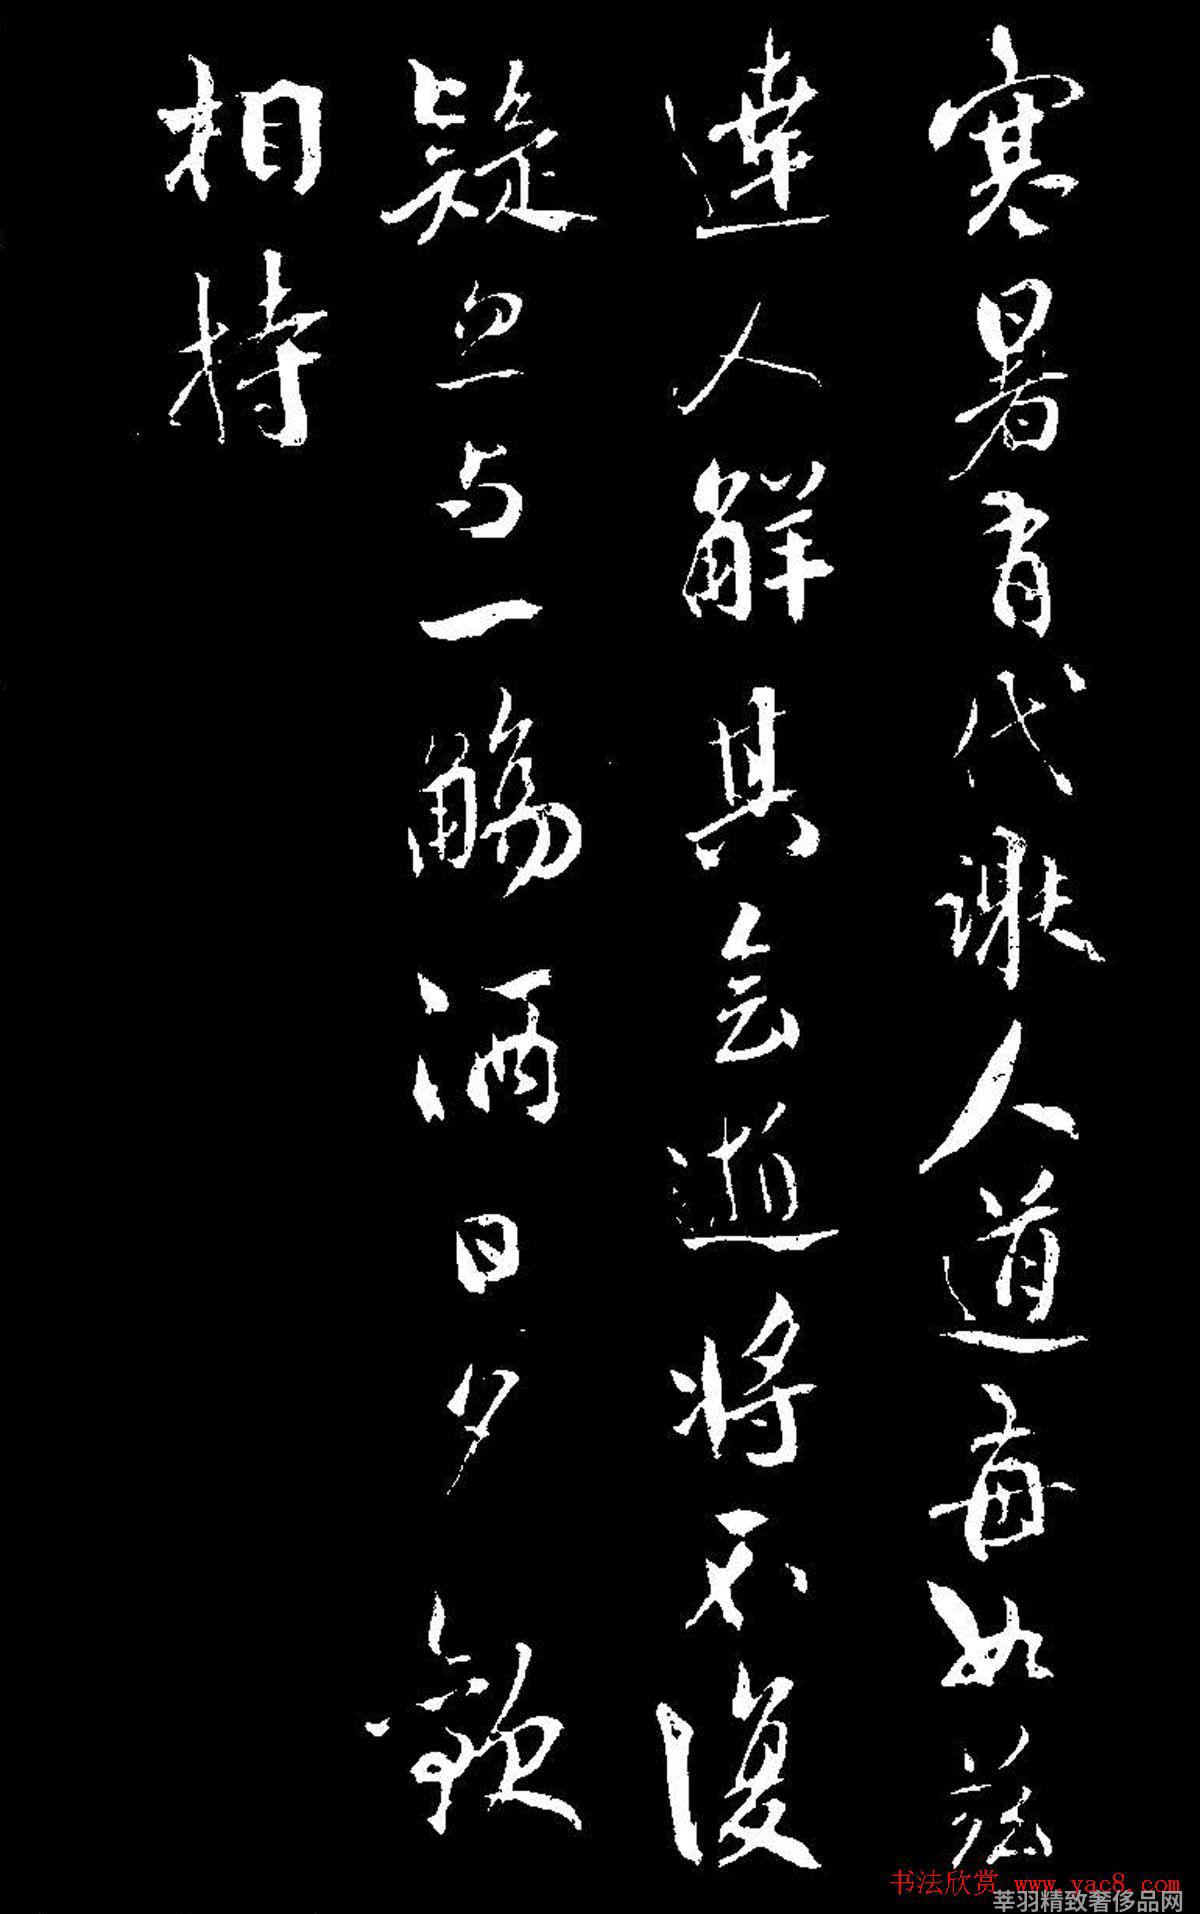 寒暑有代謝人道每如茲
達人解其会逝將不復
疑忽与一觴酒日夕歡
相持
书法欣赏 www.yac8.com
莘羽精致奢侈品网